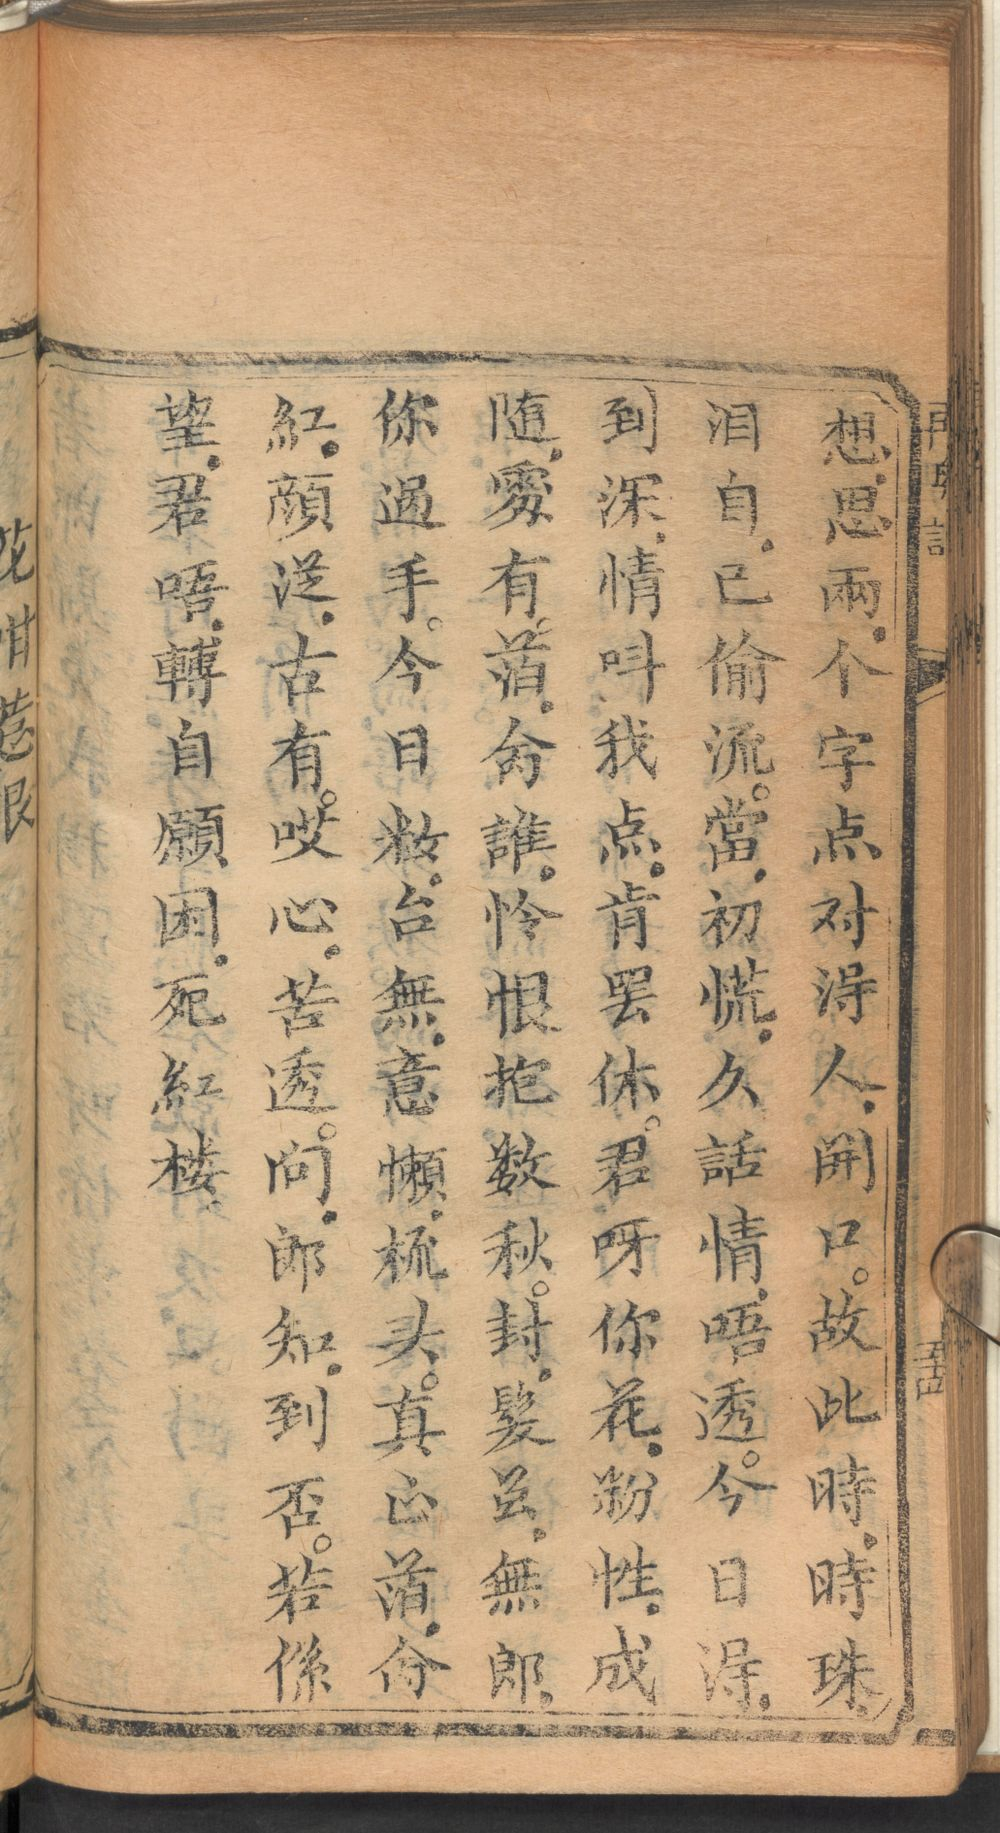 想思兩个字点对淂人開口。故此時時珠
泪自已偷流。當初慌久話情唔透。今日淂
到深情呌我点肯罢休。君呀你花粉性成
随處有。蒞分誰怜恨抱数秋。封髮?無郎
你過手。今日粧台無意懶梳头。真正蒞分
紅顔從古有。哎心苦透。问郎知到否。若係
望君唔轉自願困死紅楼
五十四
花咁惹恨